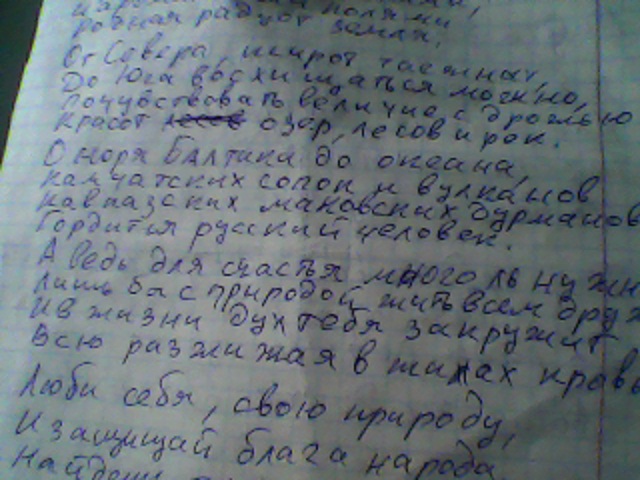 полями,
родная радует земля.
От Севера, широт таежных,
До Юга восхищаться можно,
Почувствовать величие с дрожью
Красот лесов озёр, лесов и рек.
О моря Балтики до океана,
Камчатских сопок и вулканов
Кавказских маковских дурманов
Гордится русский человек.
А ведь для счастья много ль нужн
Лишь бы с природой жить всем друж
И в жизни дух тебя закружит
Всю разжижая в жилах кровь
Люби себя, свою природу,
И защищай блага народа,
Найдёшь